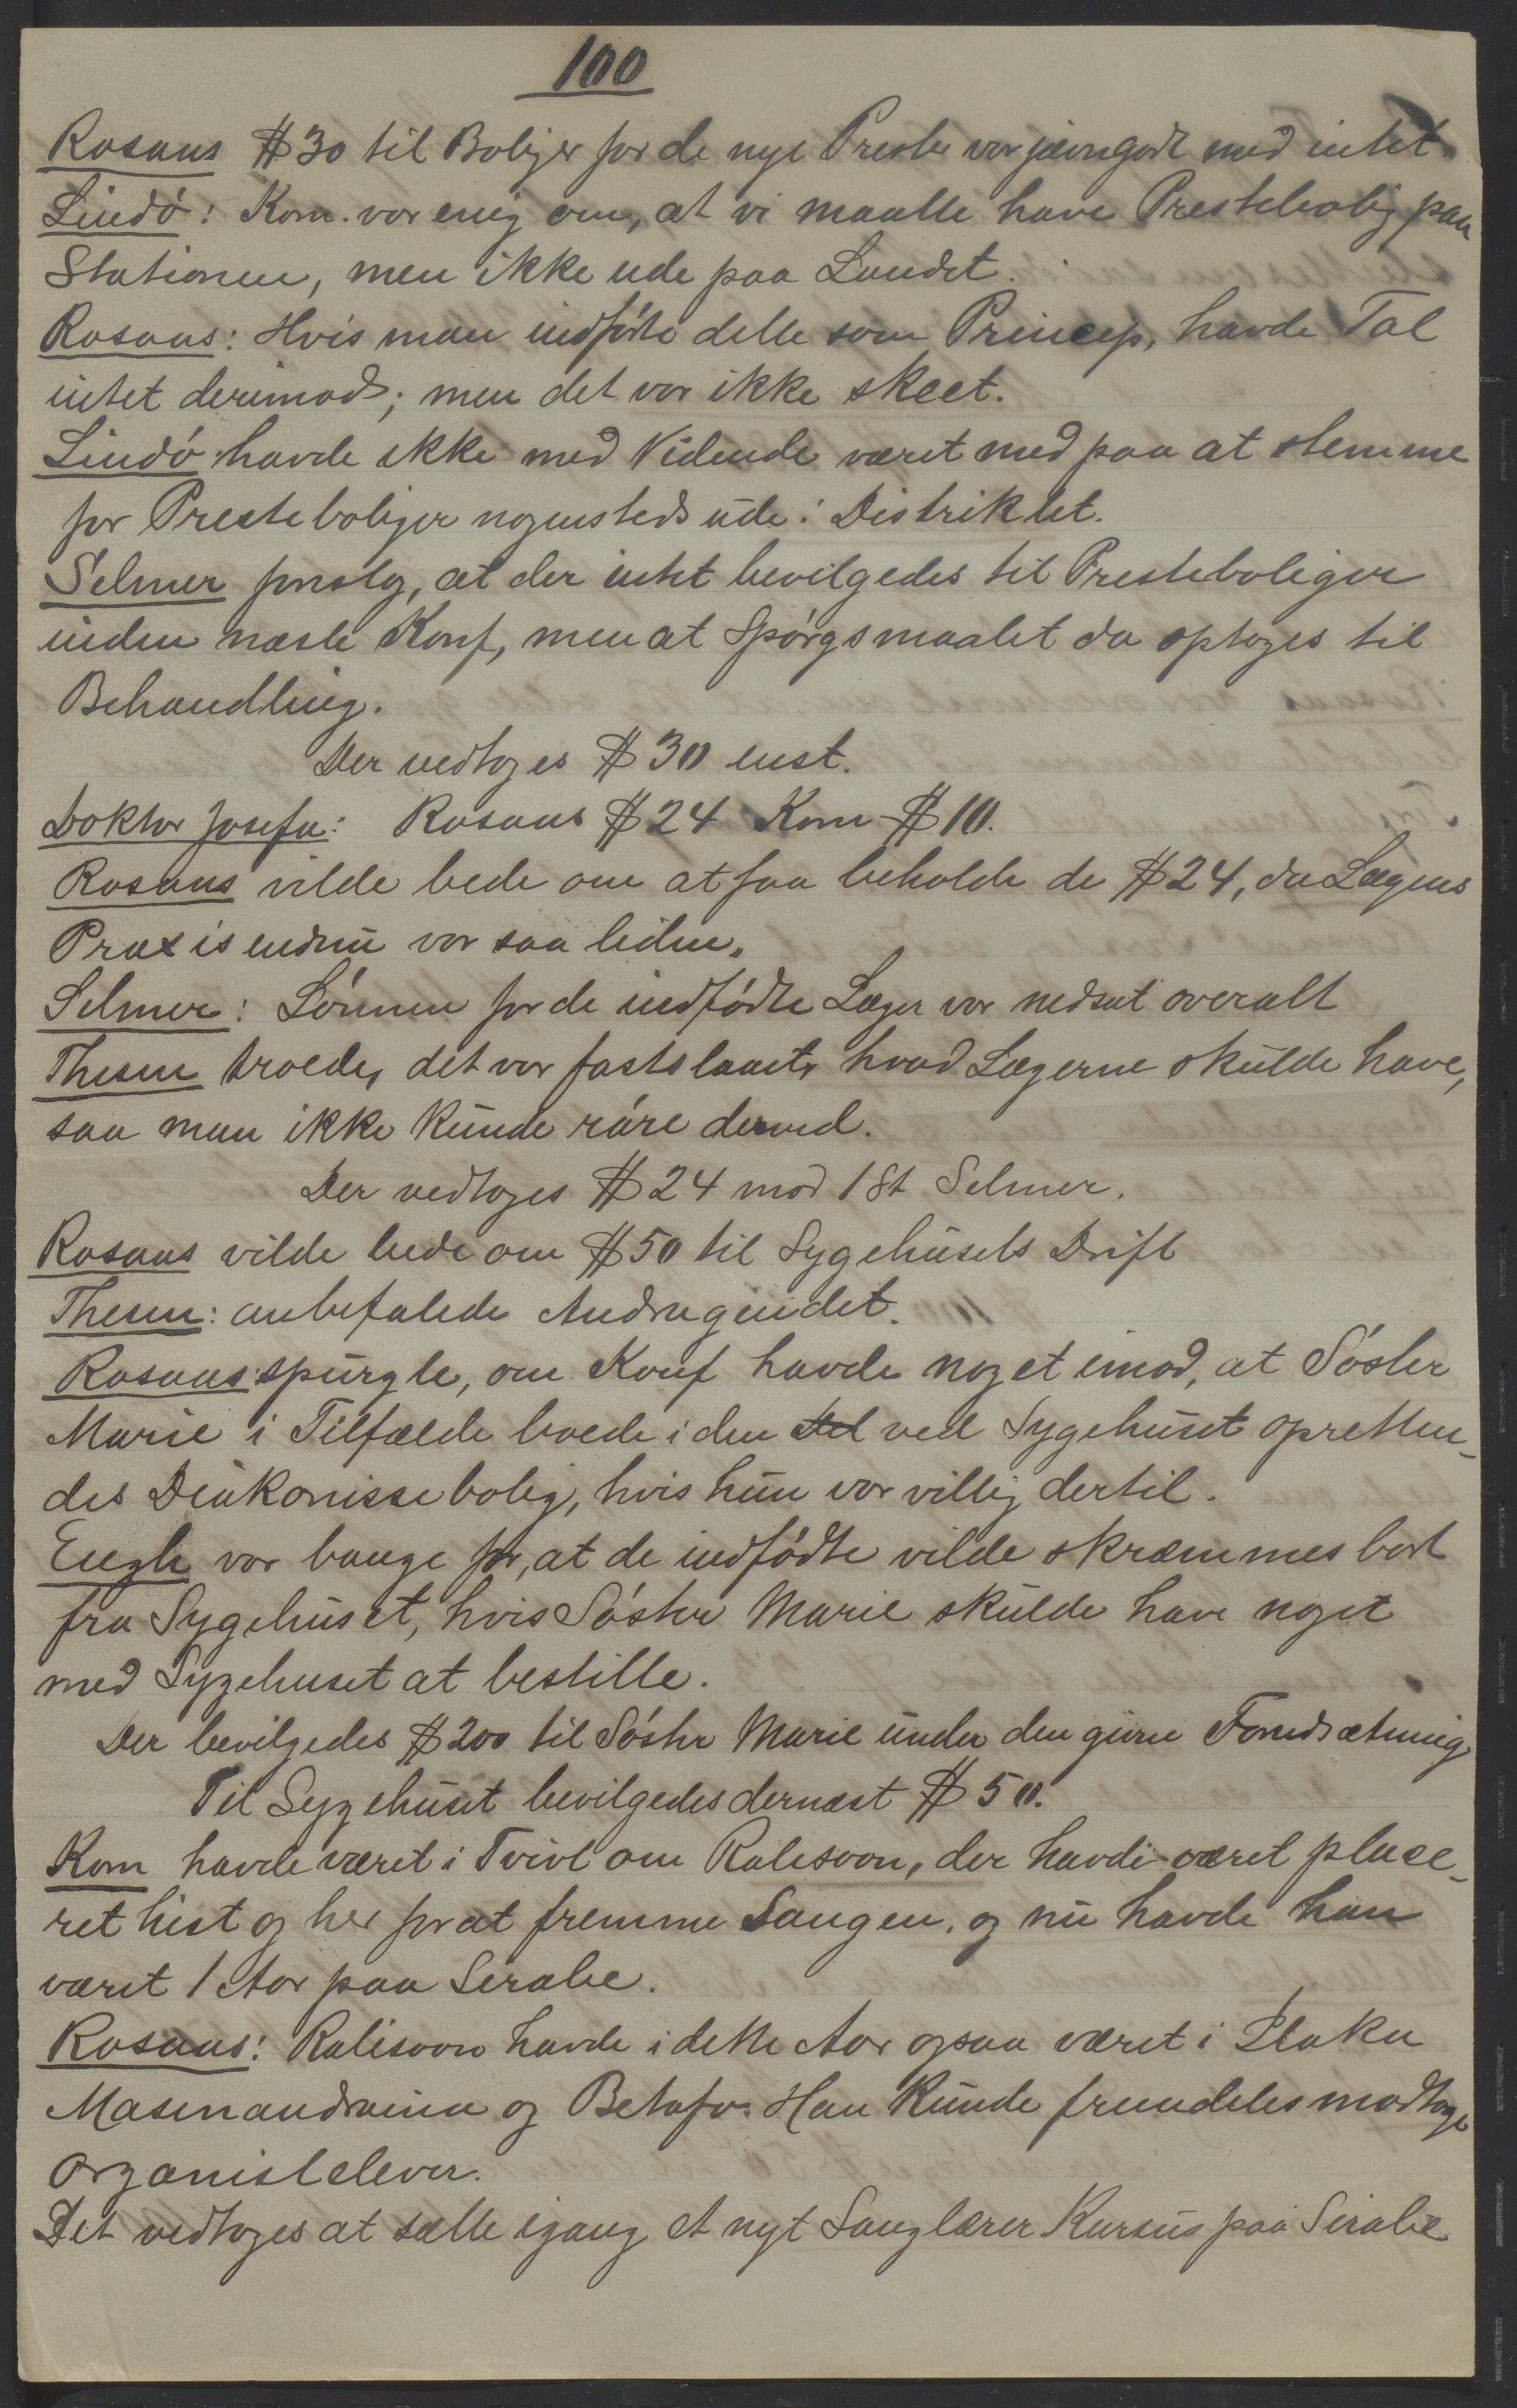 100
Rosaas $30 til Boliger for de nye Prester var jævngodt med intet.
Lindø: Kom. var enig om, at vi maatte have Prestebolig paa
Stationen, men ikke ude paa Landet.
Rosaas: Hvis man indførte dette som Princip, havde Tal
intet derimod; men det var ikke skeet.
Lindø havde ikke med Vidende været med paa at stemme
for Presteboliger nogensteds ude i Distriktet.
Selmer foreslog, at der intet bevilgedes til Presteboliger
inden næste Konf, men at Spørgsmaalet da optoges til
Behandling.
Der vedtoges $30 enst.
Doktor Josefa: Rosaas $24 Kom $10.
Rosaas vilde bede om at faa beholde de $24, da Lægens
Praxis endnu var saa liden.
Selmer: Lønnen for de indfødte Læger var nedsat overalt
Thesen troede, det var fastslaaet, hvad Lægerne skulde have,
saa man ikke kunde røre derved.
Der vedtoges $24 mod 1 St Selmer.
Rosaas vilde bede om $50 til Sygehusets Drift
Thesen: anbefalede Andragendet.
Rosaas: spurgte, om Konf havde noget imod, at Søster
Marie i Tilfælde boede i den ved Sygehuset opretten-
des Diakonissebolig, hvis hun var villig dertil.
Engh var bange for, at de indfødte vilde skræmmes bort
fra Sygehuset, hvis Søster Marie skulde have noget
med Sygehuset at bestille.
Der bevilgedes $200 til Søster Marie under den givne Forudsætning
Til Sygehuset bevilgedes dernæst $50.
Kom havde været i Tvivl om Ralisoon, der havde været place-
ret hist og her for at fremme Sangen, og nu havde han
været 1 Aar paa Sirabe.
Rosaas: Ralisoon havde i dette Aar ogsaa været i Ilaka
Masinandraina og Betafo. Han kunde fremdeles modtage
Organistelever.
Det vedtoges at sætte igang et nyt Sanglærer Kursus paa Sirabe